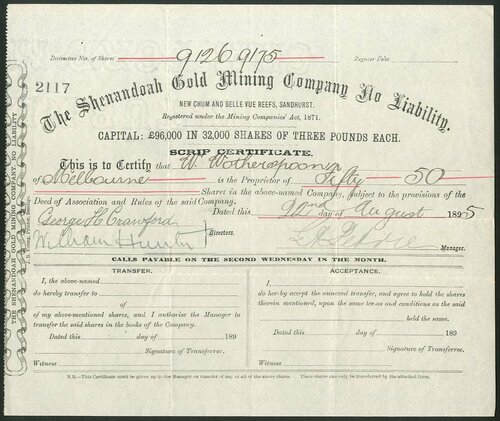 Distinctive Nos. of Shares 9126 9175 Register Folio
2117
The Shenandoah Gold Mining Company No Liability.
NEW CHUM AND BELLE VUE REEFS, SANDHURST.
Registered under the Mining Companies' Act, 1871.
CAPITAL: £96,000 IN 32,000 SHARES OF THREE POUNDS EACH.
SCRIP CERTIFICATE.
This is to Certify that W. Wotherspoon
of Melbourne is the Proprietor of Fifty 50
Shares in the above-named Company, subject to the provisions of the
Deed of Association and Rules of the said Company. Dated this 22nd day of August 1895
George H. Crawford
William Hunter Directors.
Manager.
CALLS PAYABLE ON THE SECOND WEDNESDAY IN THE MONTH.
TRANSFER.
I, the above-named
do hereby transfer to
of
of my above-mentioned shares, and I authorise the Manager to
transfer the said shares in the books of the Company.
Dated this day of 189
Signature of Transferror.
Witness
ACCEPTANCE.
I,
do hereby accept the annexed transfer, and agree to hold the shares
therein mentioned, upon the same terms and conditions as the said
held the same.
Dated this day of 189
Signature of Transferree.
Witness
N.B.—This Certificate must be given up to the Manager on transfer of any or all of the above shares. These shares can only be transferred by the attached form.
THE SHENANDOAH GOLD MINING COMPANY NO LIABILITY